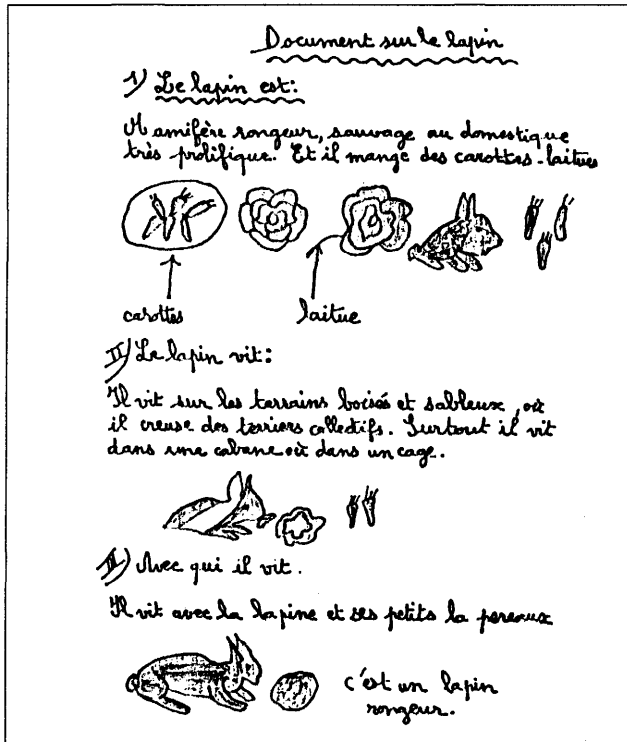 Document sur le lapin
1) Le lapin est:
Mamifère rongeur, sauvage au domestique
très prolifique. Et il mange des carottes-laitues
carottes
laitue
II) Le lapin vit:
Il vit sur les terrains boisés et sableux, où
il creuse des terriers collectifs. Surtout il vit
dans une cabane où dans un cage.
II) Avec qui il vit.
Il vit avec la lapine et ses petits la pereaux
c'est un lapin
rongeur.